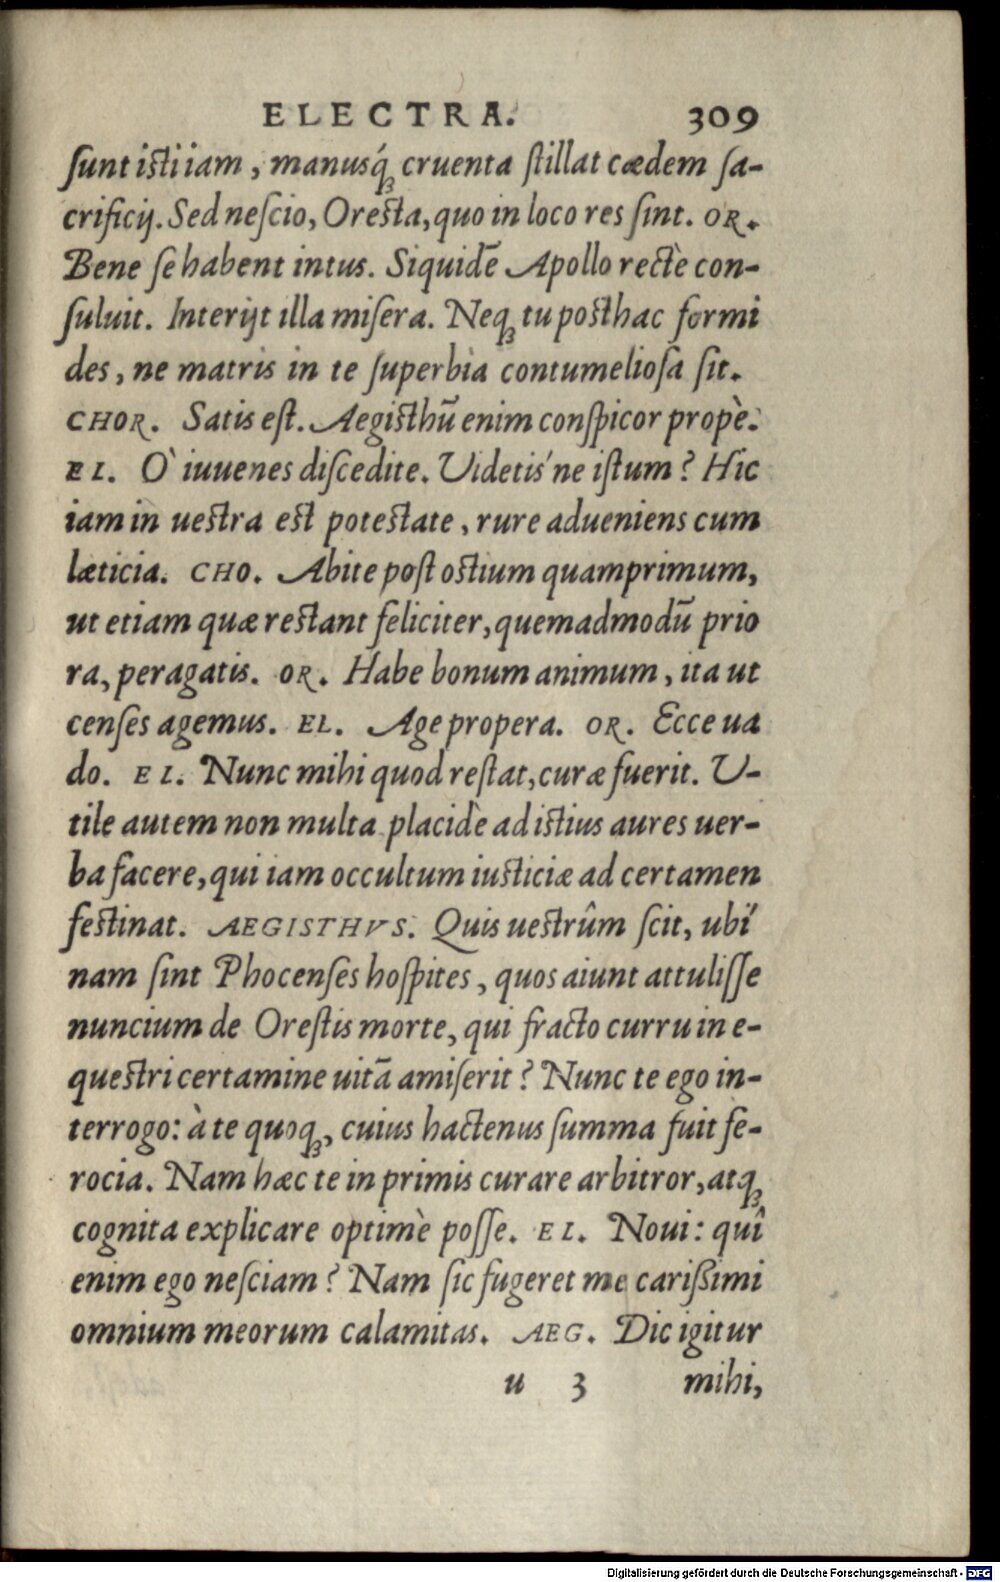 ELECTRA. 309
sunt isti iam, manusq́ꝫ cruenta stillat cædem sa-
crificij. Sed nescio, Oresta, quo in loco res sint. OR.
Bene se habent intus. Siquidē Apollo rectè con-
suluit. Interijt illa misera. Neqꝫ tu posthac formi
des, ne matris in te superbia contumeliosa sit.
CHOR. Satis est. Aegisthū enim conspicor propè.
EL. O` iuuenes discedite. Videtis'ne istum? Hic
iam in uestra est potestate, rure adueniens cum
læticia. CHO. Abite post ostium quamprimum,
ut etiam quæ restant feliciter, quemadmodū prio
ra, peragatis. OR. Habe bonum animum, ita ut
censes agemus. EL. Age propera. OR. Ecce ua
do. EL. Nunc mihi quod restat, curæ fuerit. V-
tile autem non multa placidè ad istius aures uer-
ba facere, qui iam occultum iusticiæ ad certamen
festinat. AEGISTHVS. Quis uestrûm scit, ubi'
nam sint Phocenses hospites, quos aiunt attulisse
nuncium de Orestis morte, qui fracto curru in e-
questri certamine uitā amiserit? Nunc te ego in-
terrogo: à te quoqꝫ, cuius hactenus summa fuit fe-
rocia. Nam hæc te in primis curare arbitror, atqꝫ
cognita explicare optimè posse. EL. Noui: quî
enim ego nesciam? Nam sic fugeret me carißimi
omnium meorum calamitas. AEG. Dic igitur
u 3 mihi,
Digitalisierung gefördert durch die Deutsche Forschungsgemeinschaft - DFG